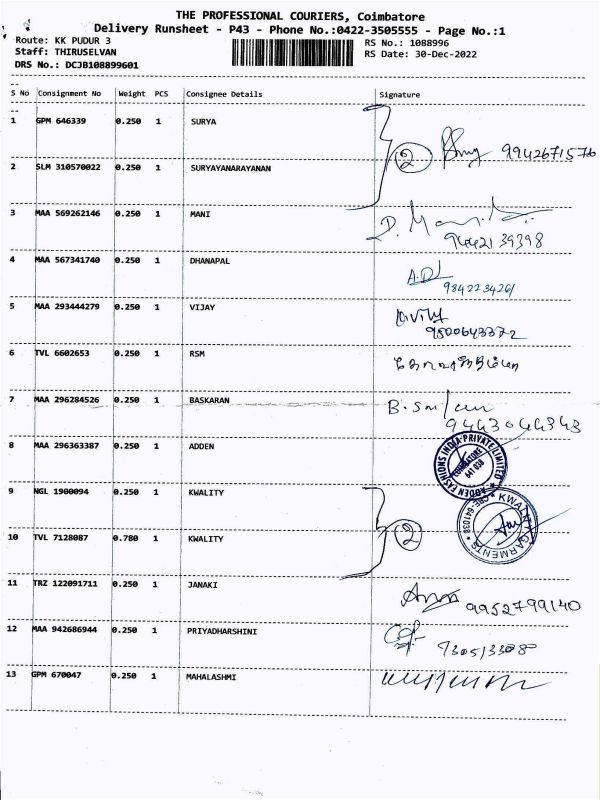 THE PROFESSIONAL COURIERS, Coimbatore
Delivery Runsheet - P43 - Phone No.:0422-3505555 - Page No.:1
Route: KK PUDUR 3
RS No.: 1088996
Staff: THIRUSELVAN
RS Date: 30-Dec-2022
DRS No.: DCJB108899601
S No Consignment No Weight PCS Consignee Details Signature
1 GPM 646339 0.250 1 SURYA
2 9942671576
2 SLM 310570022 0.250 1 SURYAYANARAYANAN
3 MAA 569262146 0.250 1 MANI
9442139398
4 MAA 567341740 0.250 1 DHANAPAL
9842234261
5 MAA 293444279 0.250 1 VIJAY
9500643372
6 TVL 6602653 0.250 1 RSM
7 MAA 296284526 0.250 1 BASKARAN
9443044343
8 MAA 296363387 0.250 1 ADDEN
ADDEN FASHIONS INDIA PRIVATE LIMITED
COIMBATORE
641 038
9 NGL 1900094 0.250 1 KWALITY
KWALITY GARMENTS * CBE-641038 *
10 TVL 7128087 0.780 1 KWALITY
2
11 TRZ 122091711 0.250 1 JANAKI
9952799140
12 MAA 942686944 0.250 1 PRIYADHARSHINI
13 GPM 670047 0.250 1 MAHALASHMI